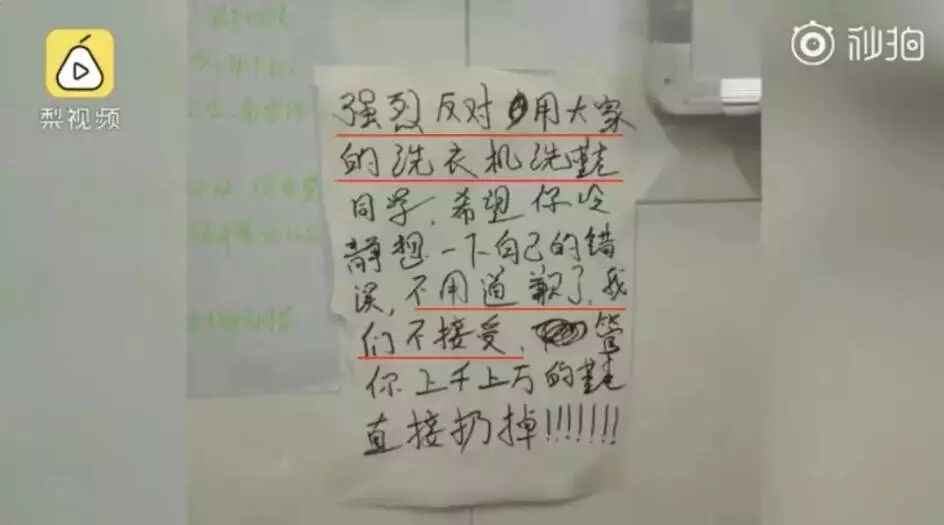 梨视频
秒拍
强烈反对用大家
的洗衣机洗鞋
同学，希望你冷
静想一下自己的错
误，不用道歉了，我
们不接受，管
你上千上万的鞋
直接扔掉!!!!!!!